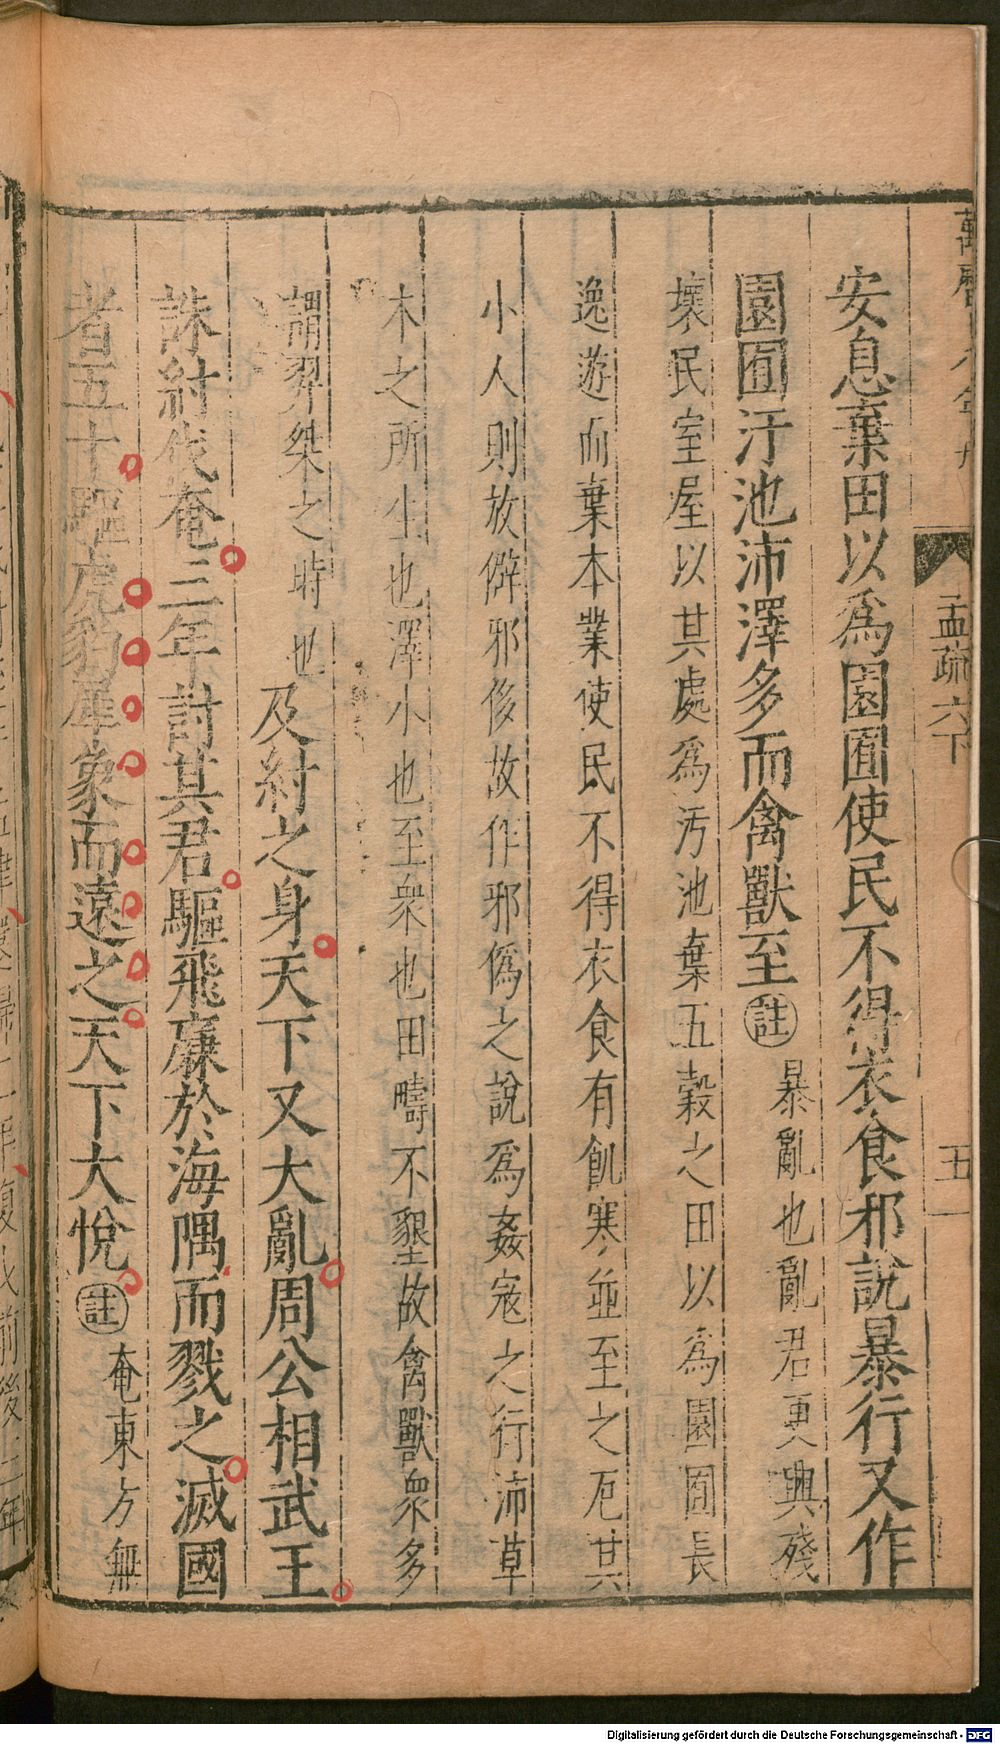 孟疏六下
五
安息棄田以為園囿使民不得衣食邪說暴行又作
園囿汙池沛澤多而禽獸至註暴亂也亂君更興殘
壞民室屋以其處為汚池棄五穀之田以為園囿長
逸遊而棄本業使民不得衣食有飢寒並至之厄其
小人則放僻邪侈故作邪偽之說為姦寇之行沛草
木之所生也澤小也至衆也田疇不墾故禽獸衆多
謂羿桀之時也及紂之身天下又大亂周公相武王
誅紂伐奄三年討其君驅飛廉於海隅而戮之滅國
者五十驅虎豹犀象而遠之天下大悅註奄東方無
Digitalisierung gefördert durch die Deutsche Forschungsgemeinschaft - DFG